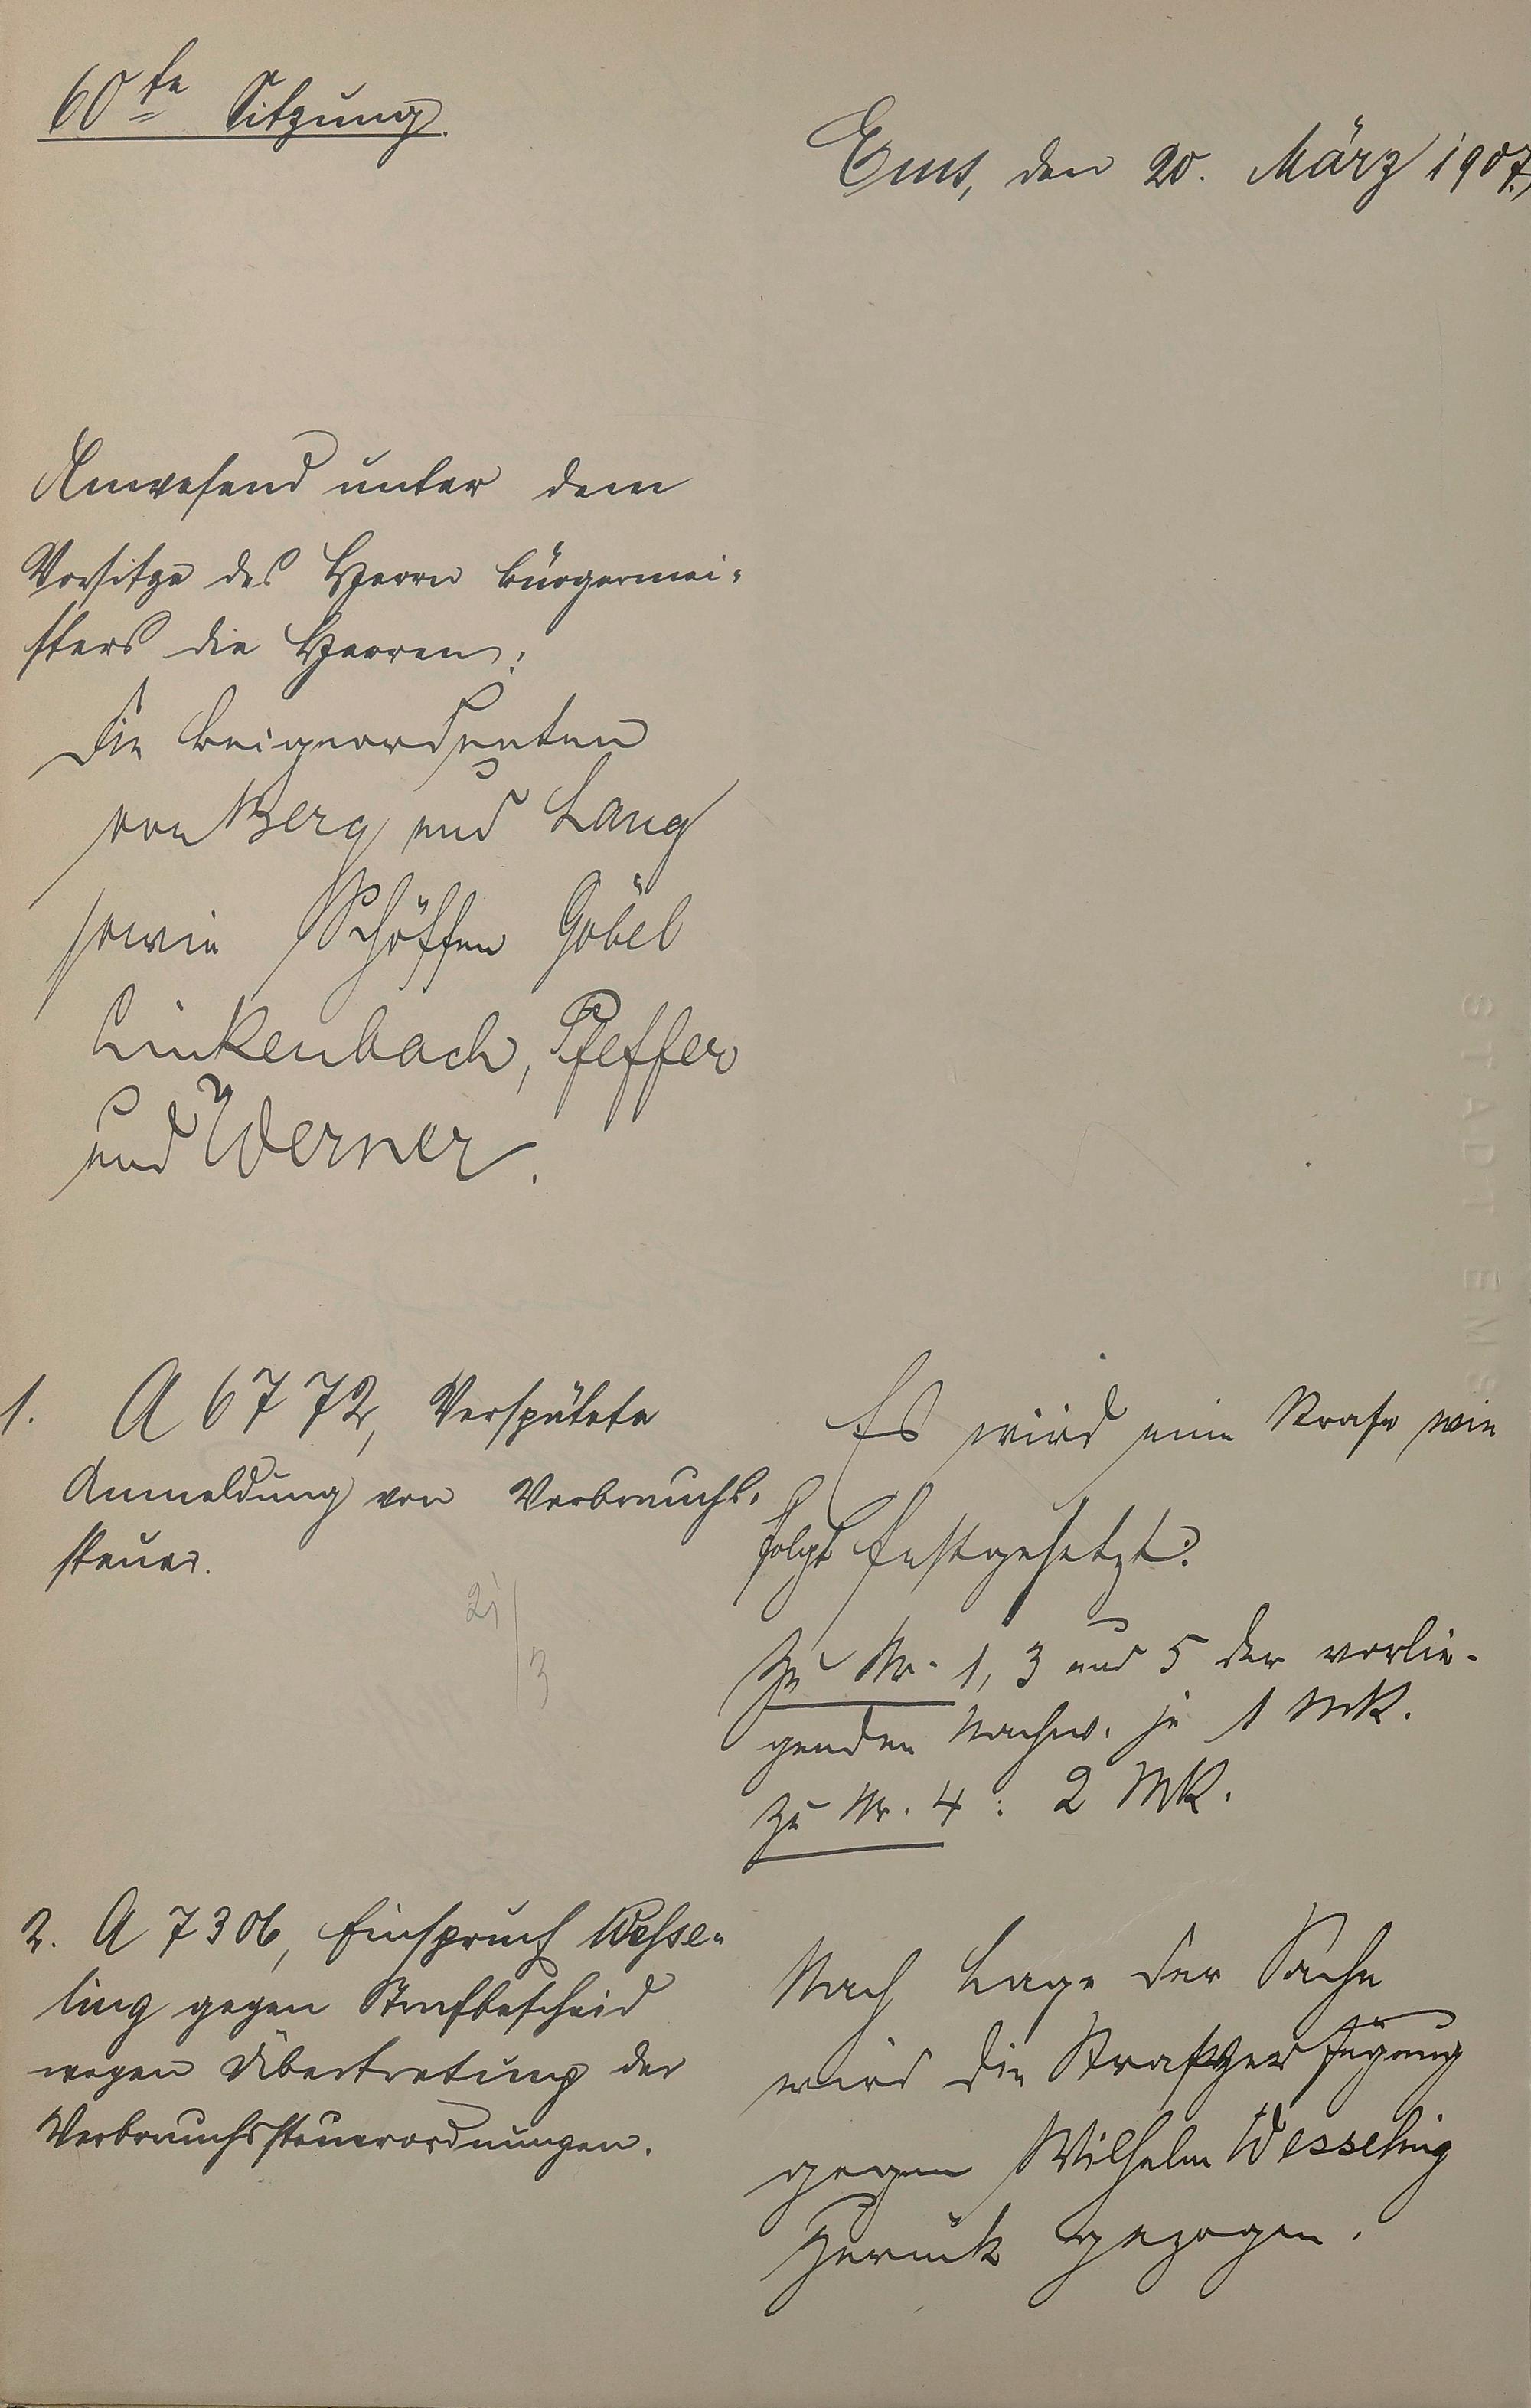 60te Sitzung.
Ems, den 20. März 1907.
Anwesend unter dem
Vorsitze des Herrn Bürgermei-
sters die Herren:
Die Beigeordneten
von Berg und Lang
sowie Schöffen Göbel
Linkenbach, Pfeffer
und Werner.
1. A 6772, Verspätete
Anmeldung von Verbrauchs-
steuer.
21/3
Es wird eine Strafe wie
folgt festgesetzt:
Zu Nr. 1, 3 und 5 der vorlie-
genden Nachw. je 1 Mk.
Zu Nr. 4: 2 Mk.
2. A 7306, Einspruch Wesse-
ling gegen Strafbescheid
wegen Übertretung der
Verbrauchssteuerordnungen.
Nach Lage der Sache
wird die Strafverfügung
gegen Wilhelm Wesseling
zurück gezogen.
STADT EMS